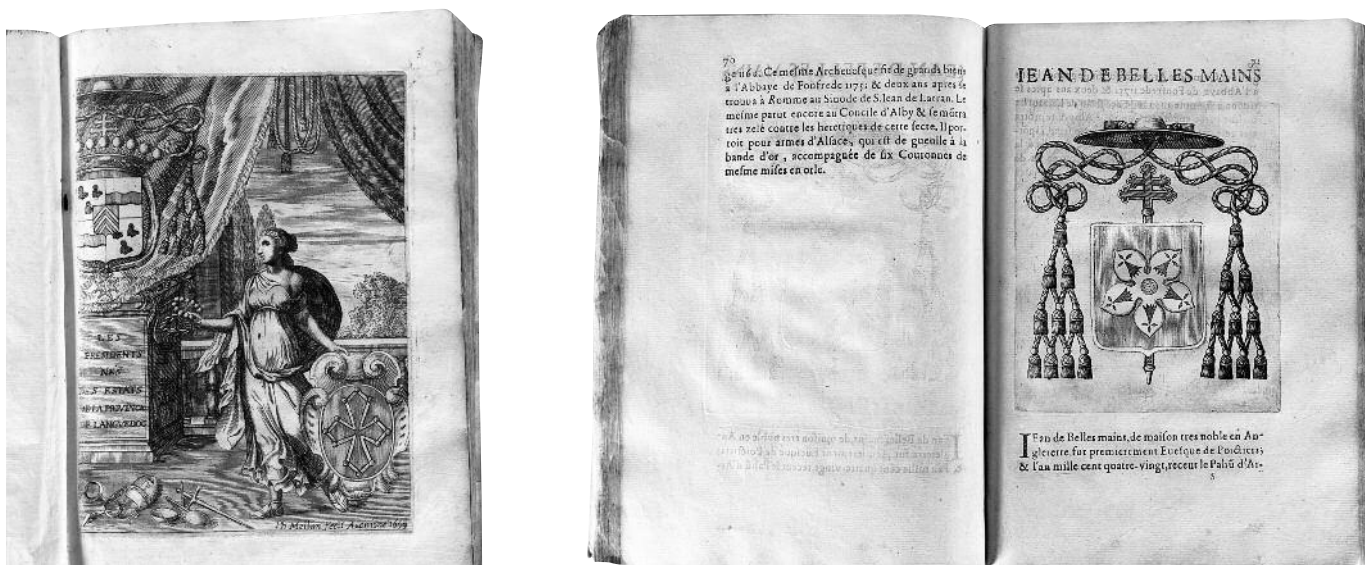 LES
PRESIDENTS
NES
DES ESTATS
DE LA PROVINCE
DE LANGVEDOC
fecit 1659
70
ge 1162. Ce meſme Archeueſque fit de grands biens
à l'Abbaye de Fonfrede 1175; & deux ans apres ſe
trouua à Romme au Sinode de S. Iean de Latran. Le
meſme parut encore au Concile d'Alby & ſe mõtra
tres zelé contre les heretiques de cette ſecte. Il por-
toit pour armes d'Alſace, qui eſt de gueulle à la
bande d'or, accompagnée de ſix Couronnes de
meſme miſes en orle.
71
IEAN DE BELLES MAINS
IEan de Belles mains, de maiſon tres noble en An-
gleterre fut premierement Eueſque de Poictiers;
& l'an mille cent quatre-vingt, receut le Paliũ d'Ar-
S